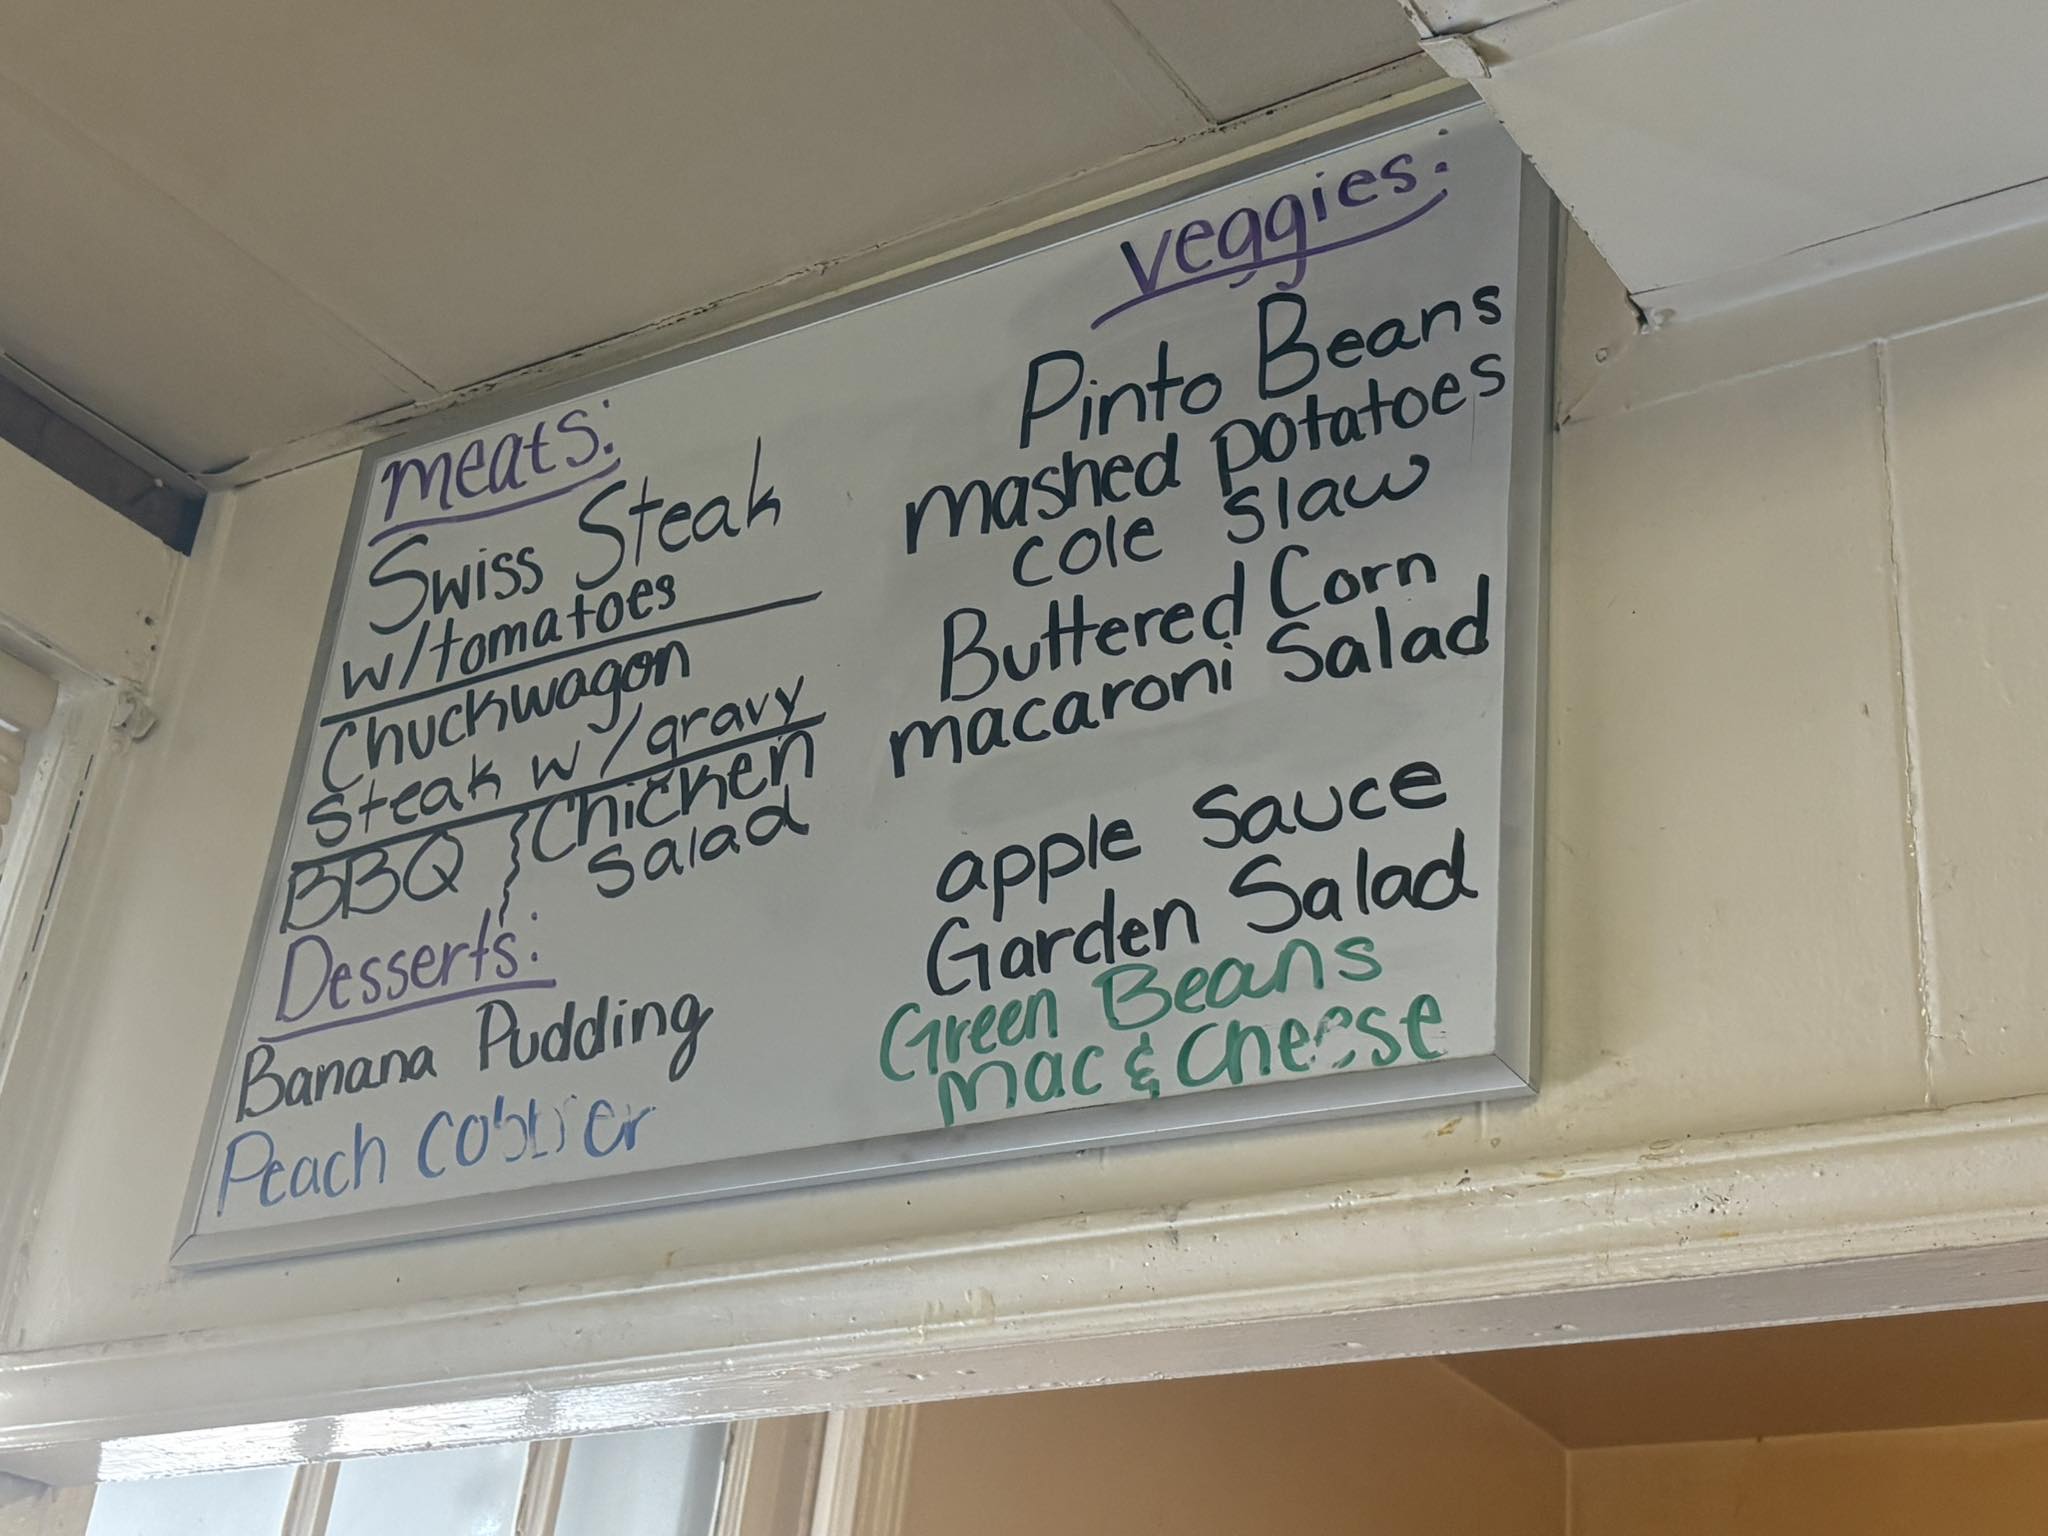 meats:
Swiss Steak
w/tomatoes
Chuckwagon
Steak w/gravy
BBQ
Chicken
Salad
Desserts:
Banana Pudding
Peach Cobbler
veggies:
Pinto Beans
mashed potatoes
cole slaw
Buttered Corn
macaroni Salad
apple Sauce
Garden Salad
Green Beans
mac & Cheese